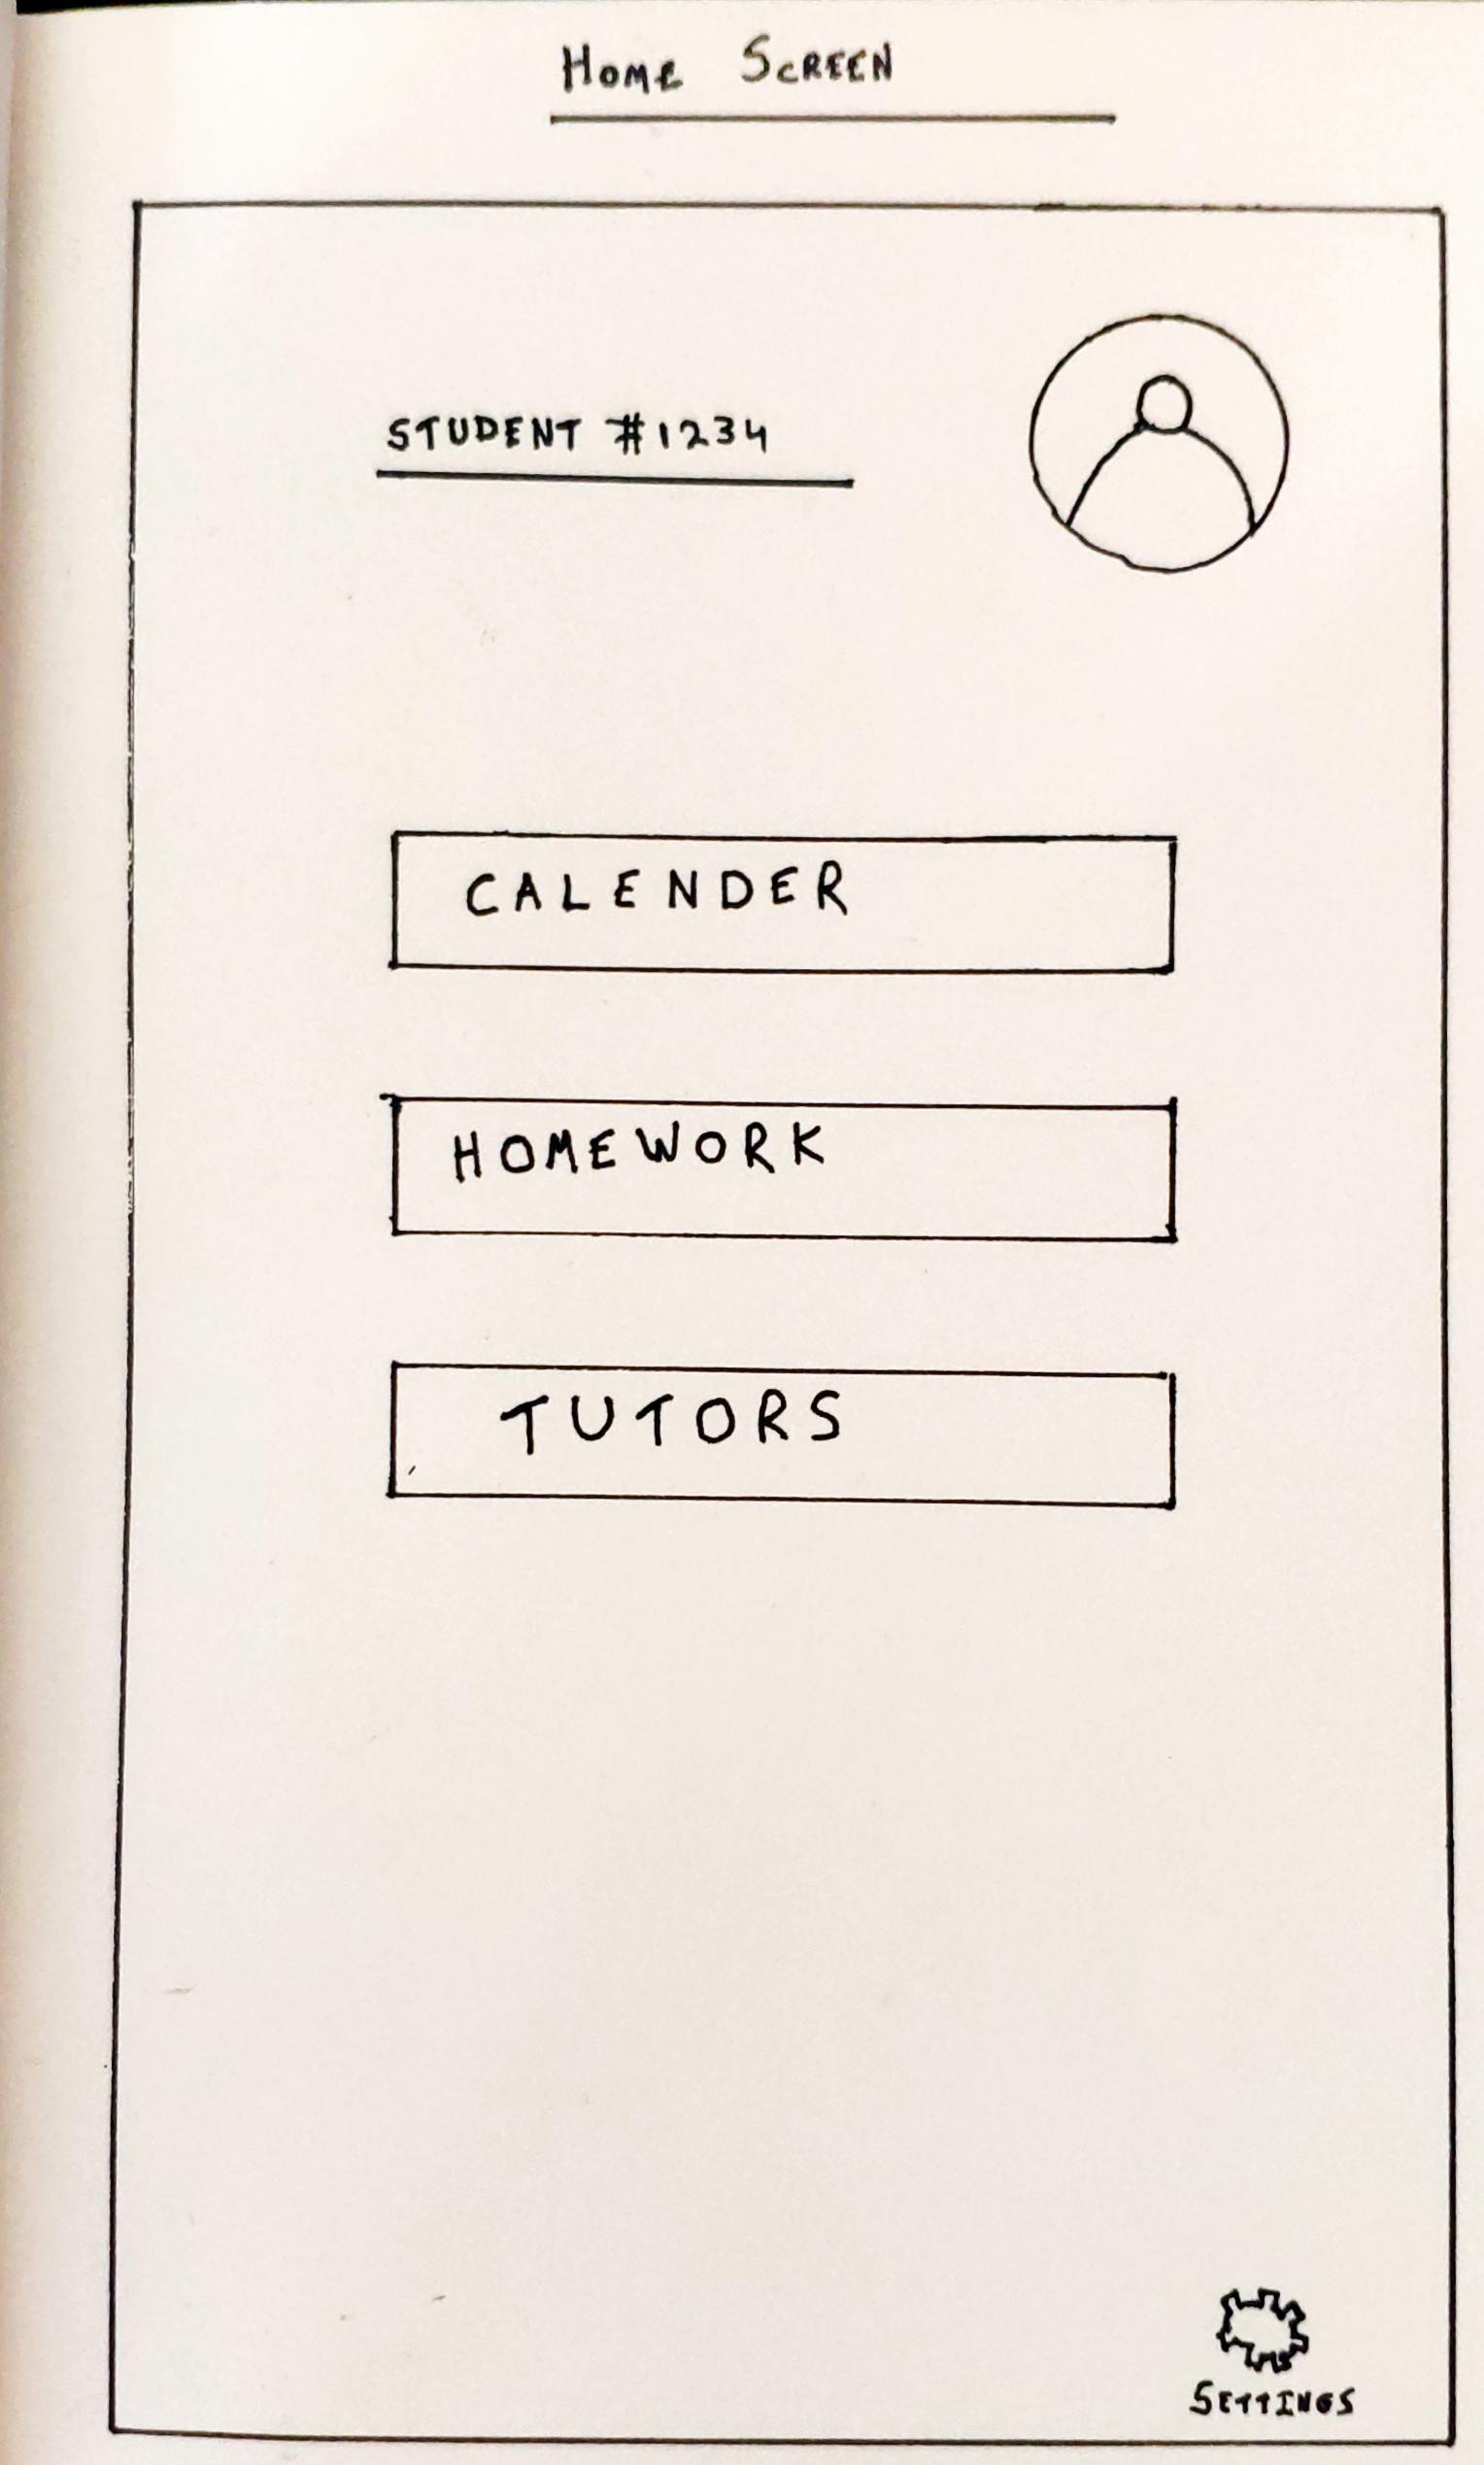 Home SCREEN
STUDENT #1234
CALENDER
HOMEWORK
TUTORS
SETTINGS